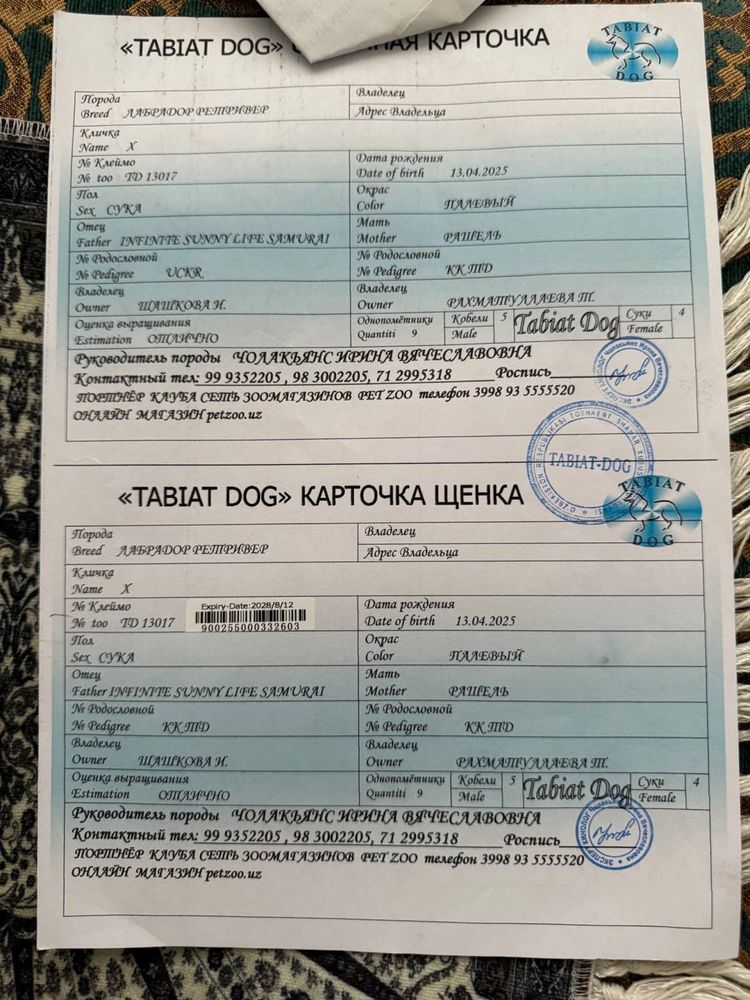 «TABIAT DOG» КАРТОЧКА
TABIAT
DOG
Порода
Breed ЛАБРАДОР РЕТРИВЕР
Владелец
Адрес Владельца
Кличка
Name X
№ Клеймо
№ too TD 13017
Дата рождения
Date of birth 13.04.2025
Пол
Sex СУКА
Окрас
Color ПАЛЕВЫЙ
Отец
Father INFINITE SUNNY LIFE SAMURAI
Мать
Mother РАШЕЛЬ
№ Родословной
№ Pedigree UCKR
№ Родословной
№ Pedigree KK TD
Владелец
Owner ШАШКОВА И.
Владелец
Owner РАХМАТУЛЛАЕВА Т.
Оценка выращивания
Estimation ОТЛИЧНО
Однопомётники
Quantiti 9
Кобели 5
Male
Tabiat Dog
Суки 4
Female
Руководитель породы ЧОЛАКЬЯНС ИРИНА ВЯЧЕСЛАВОВНА
Контактный тел: 99 9352205 , 98 3002205, 71 2995318 Роспись
ПОРТНЁР КЛУБА СЕТЬ ЗООМАГАЗИНОВ PET ZOO телефон 3998 93 5555520
ОНЛАЙН МАГАЗИН petzoo.uz
TABIAT-DOG
«TABIAT DOG» КАРТОЧКА ЩЕНКА
TABIAT
DOG
Порода
Breed ЛАБРАДОР РЕТРИВЕР
Владелец
Адрес Владельца
Кличка
Name X
№ Клеймо
№ too TD 13017
Expiry-Date:2028/8/12
900255000332603
Дата рождения
Date of birth 13.04.2025
Пол
Sex СУКА
Окрас
Color ПАЛЕВЫЙ
Отец
Father INFINITE SUNNY LIFE SAMURAI
Мать
Mother РАШЕЛЬ
№ Родословной
№ Pedigree KK TD
№ Родословной
№ Pedigree KK TD
Владелец
Owner ШАШКОВА И.
Владелец
Owner РАХМАТУЛЛАЕВА Т.
Оценка выращивания
Estimation ОТЛИЧНО
Однопомётники
Quantiti 9
Кобели 5
Male
Tabiat Dog
Суки 4
Female
Руководитель породы ЧОЛАКЬЯНС ИРИНА ВЯЧЕСЛАВОВНА
Контактный тел: 99 9352205 , 98 3002205, 71 2995318 Роспись
ПОРТНЁР КЛУБА СЕТЬ ЗООМАГАЗИНОВ PET ZOO телефон 3998 93 5555520
ОНЛАЙН МАГАЗИН petzoo.uz